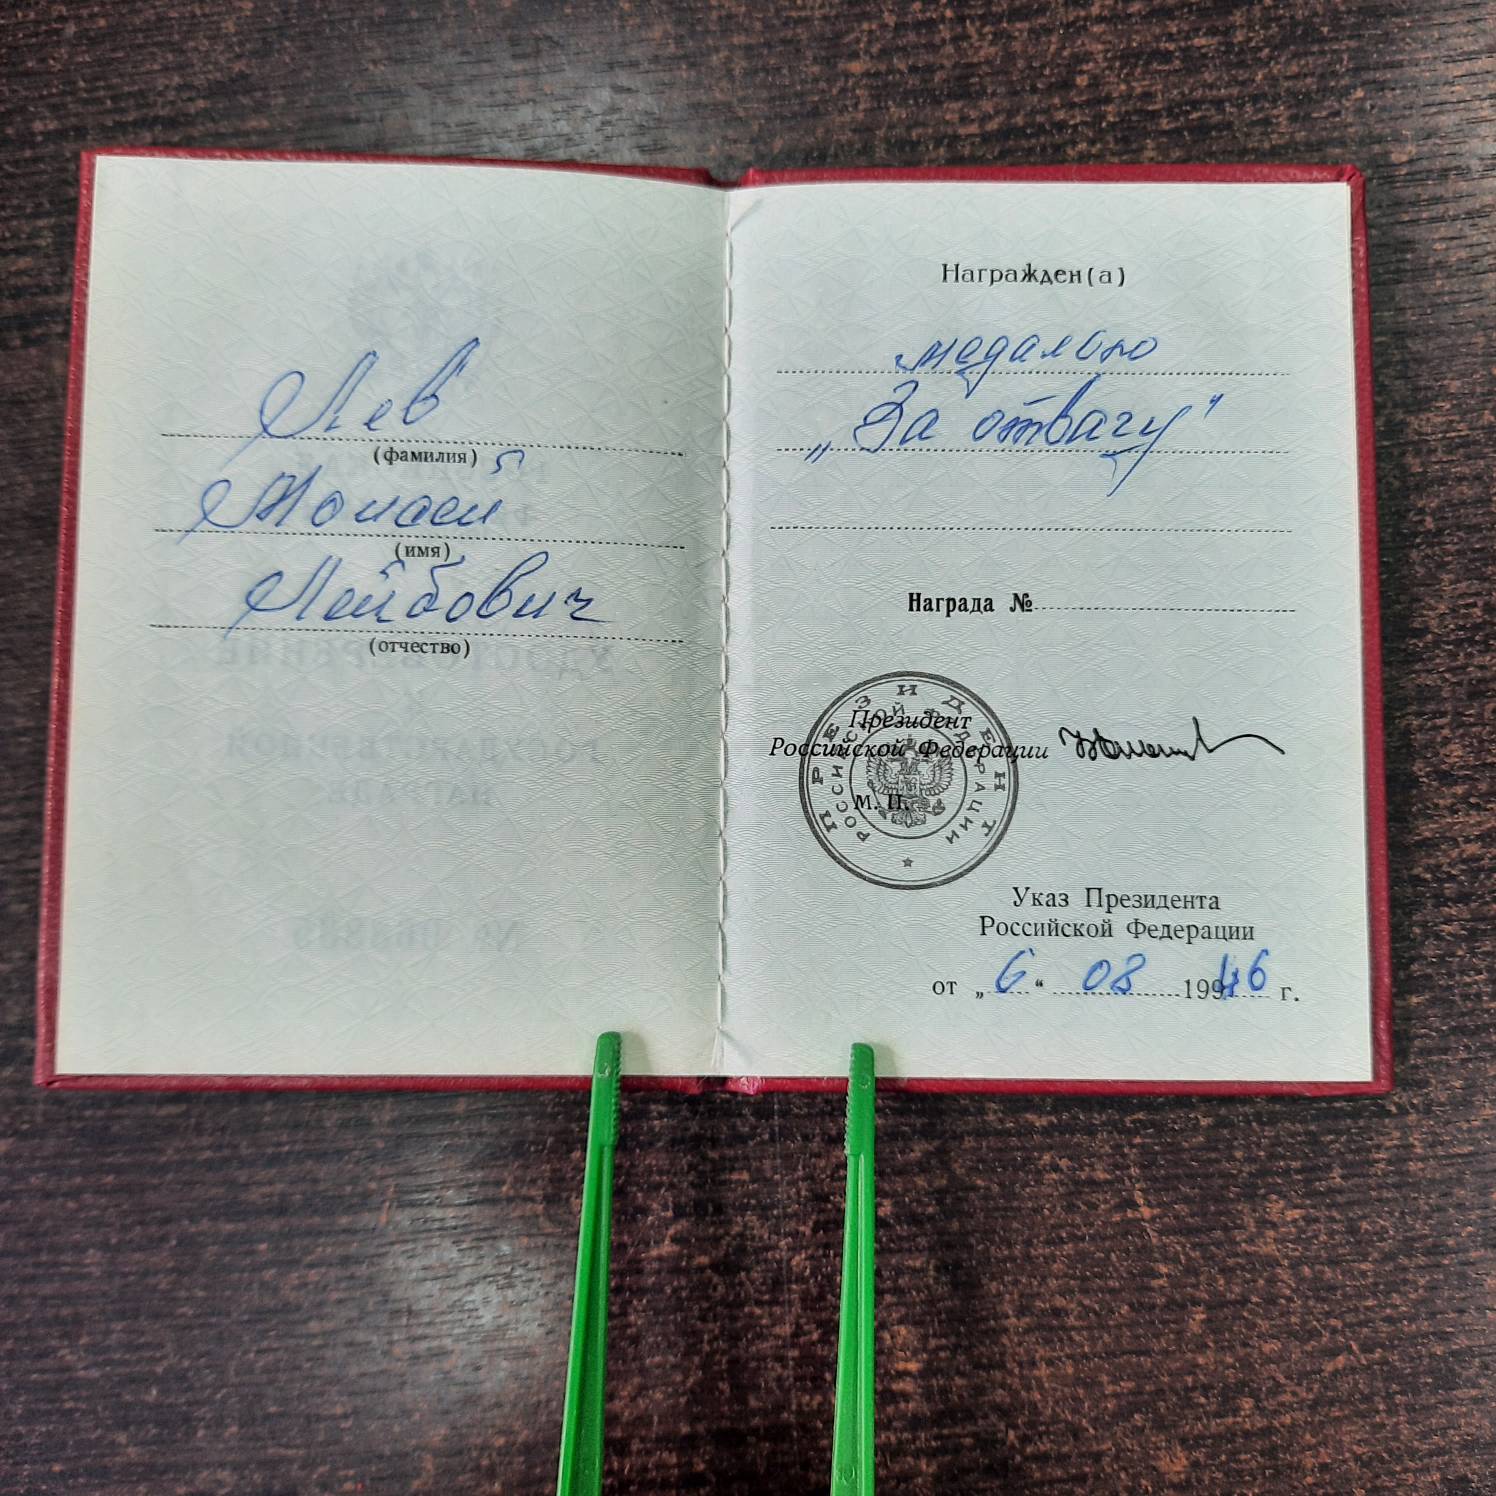 Лев
(фамилия)
Монасей
(имя)
Лейбович
(отчество)
Награжден(а)
медалью
„За отвагу"
Награда №
ПРЕЗИДЕНТ
РОССИЙСКОЙ ФЕДЕРАЦИИ
Президент
Российской Федерации
М. П.
Указ Президента
Российской Федерации
от „6“ 08 1946 г.